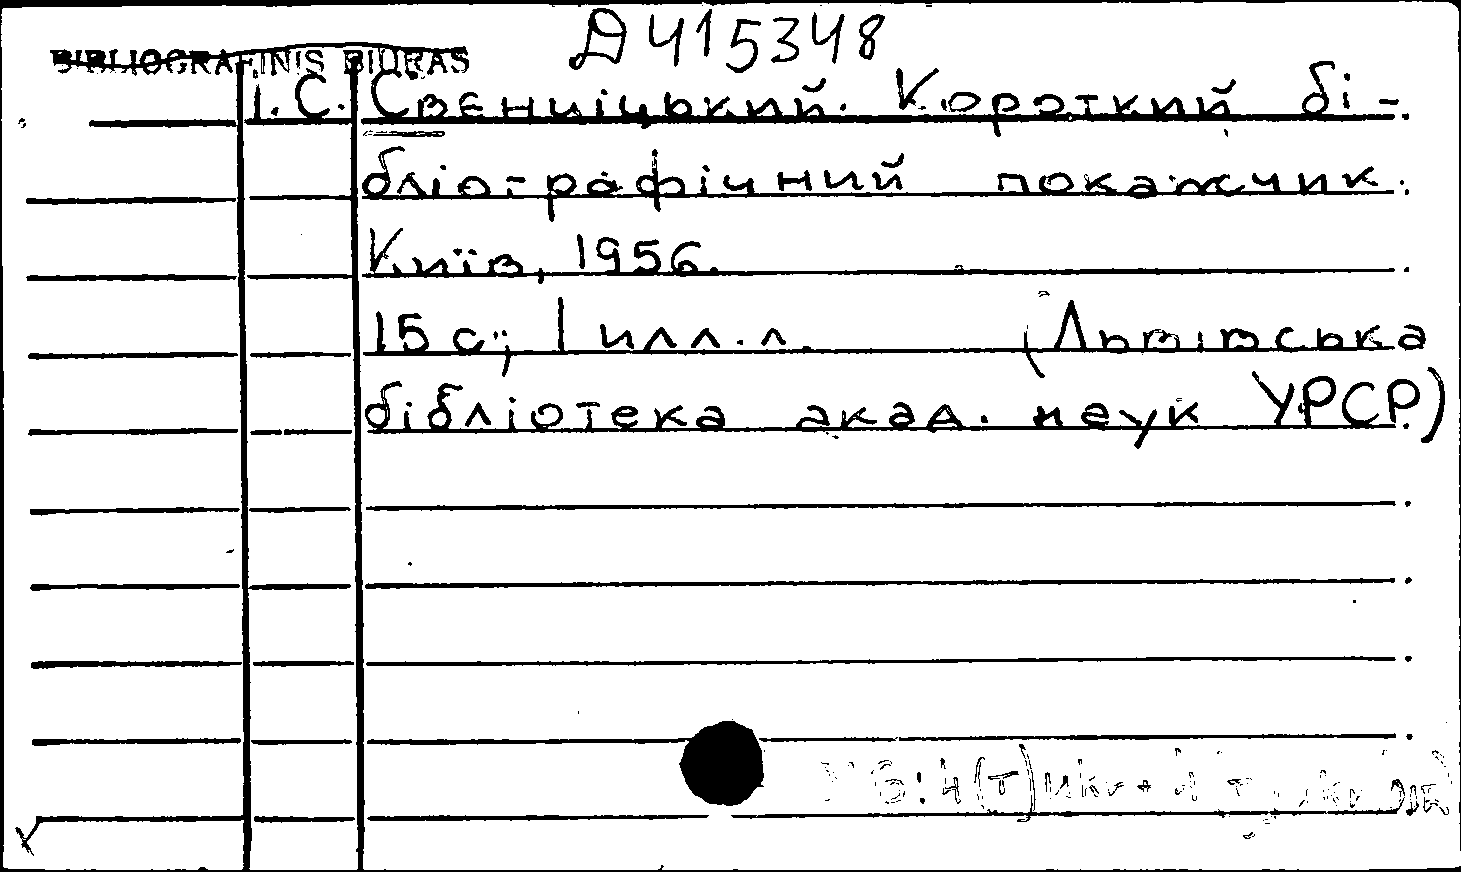 Д415348
BIBLIOGRAFINIS BIURAS
І. С. Свєнціцький. Короткий бі-
бліографічний покажчик.
Київ, 1956.
15 с.; 1 илл. л. (Львівська
бібліотека акад. наук УРСР)